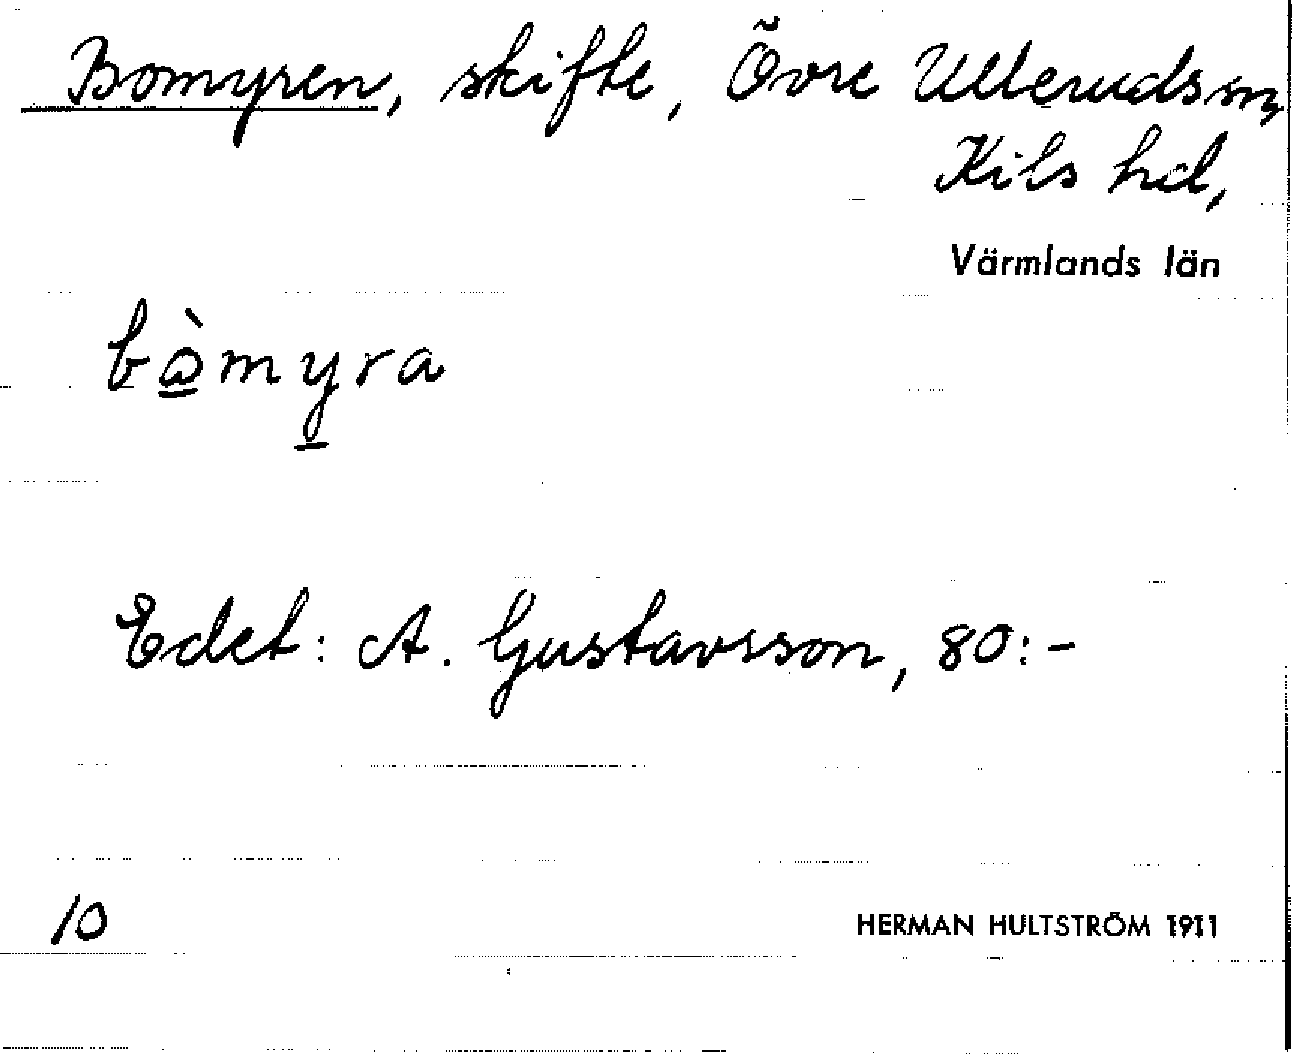 Bomyren, skifte, Övre Ulleruds sn,
Kils hd,
Värmlands län
bò̱my̱ra
Edet: A. Gustavsson, 80:-
10
HERMAN HULTSTRÖM 1911